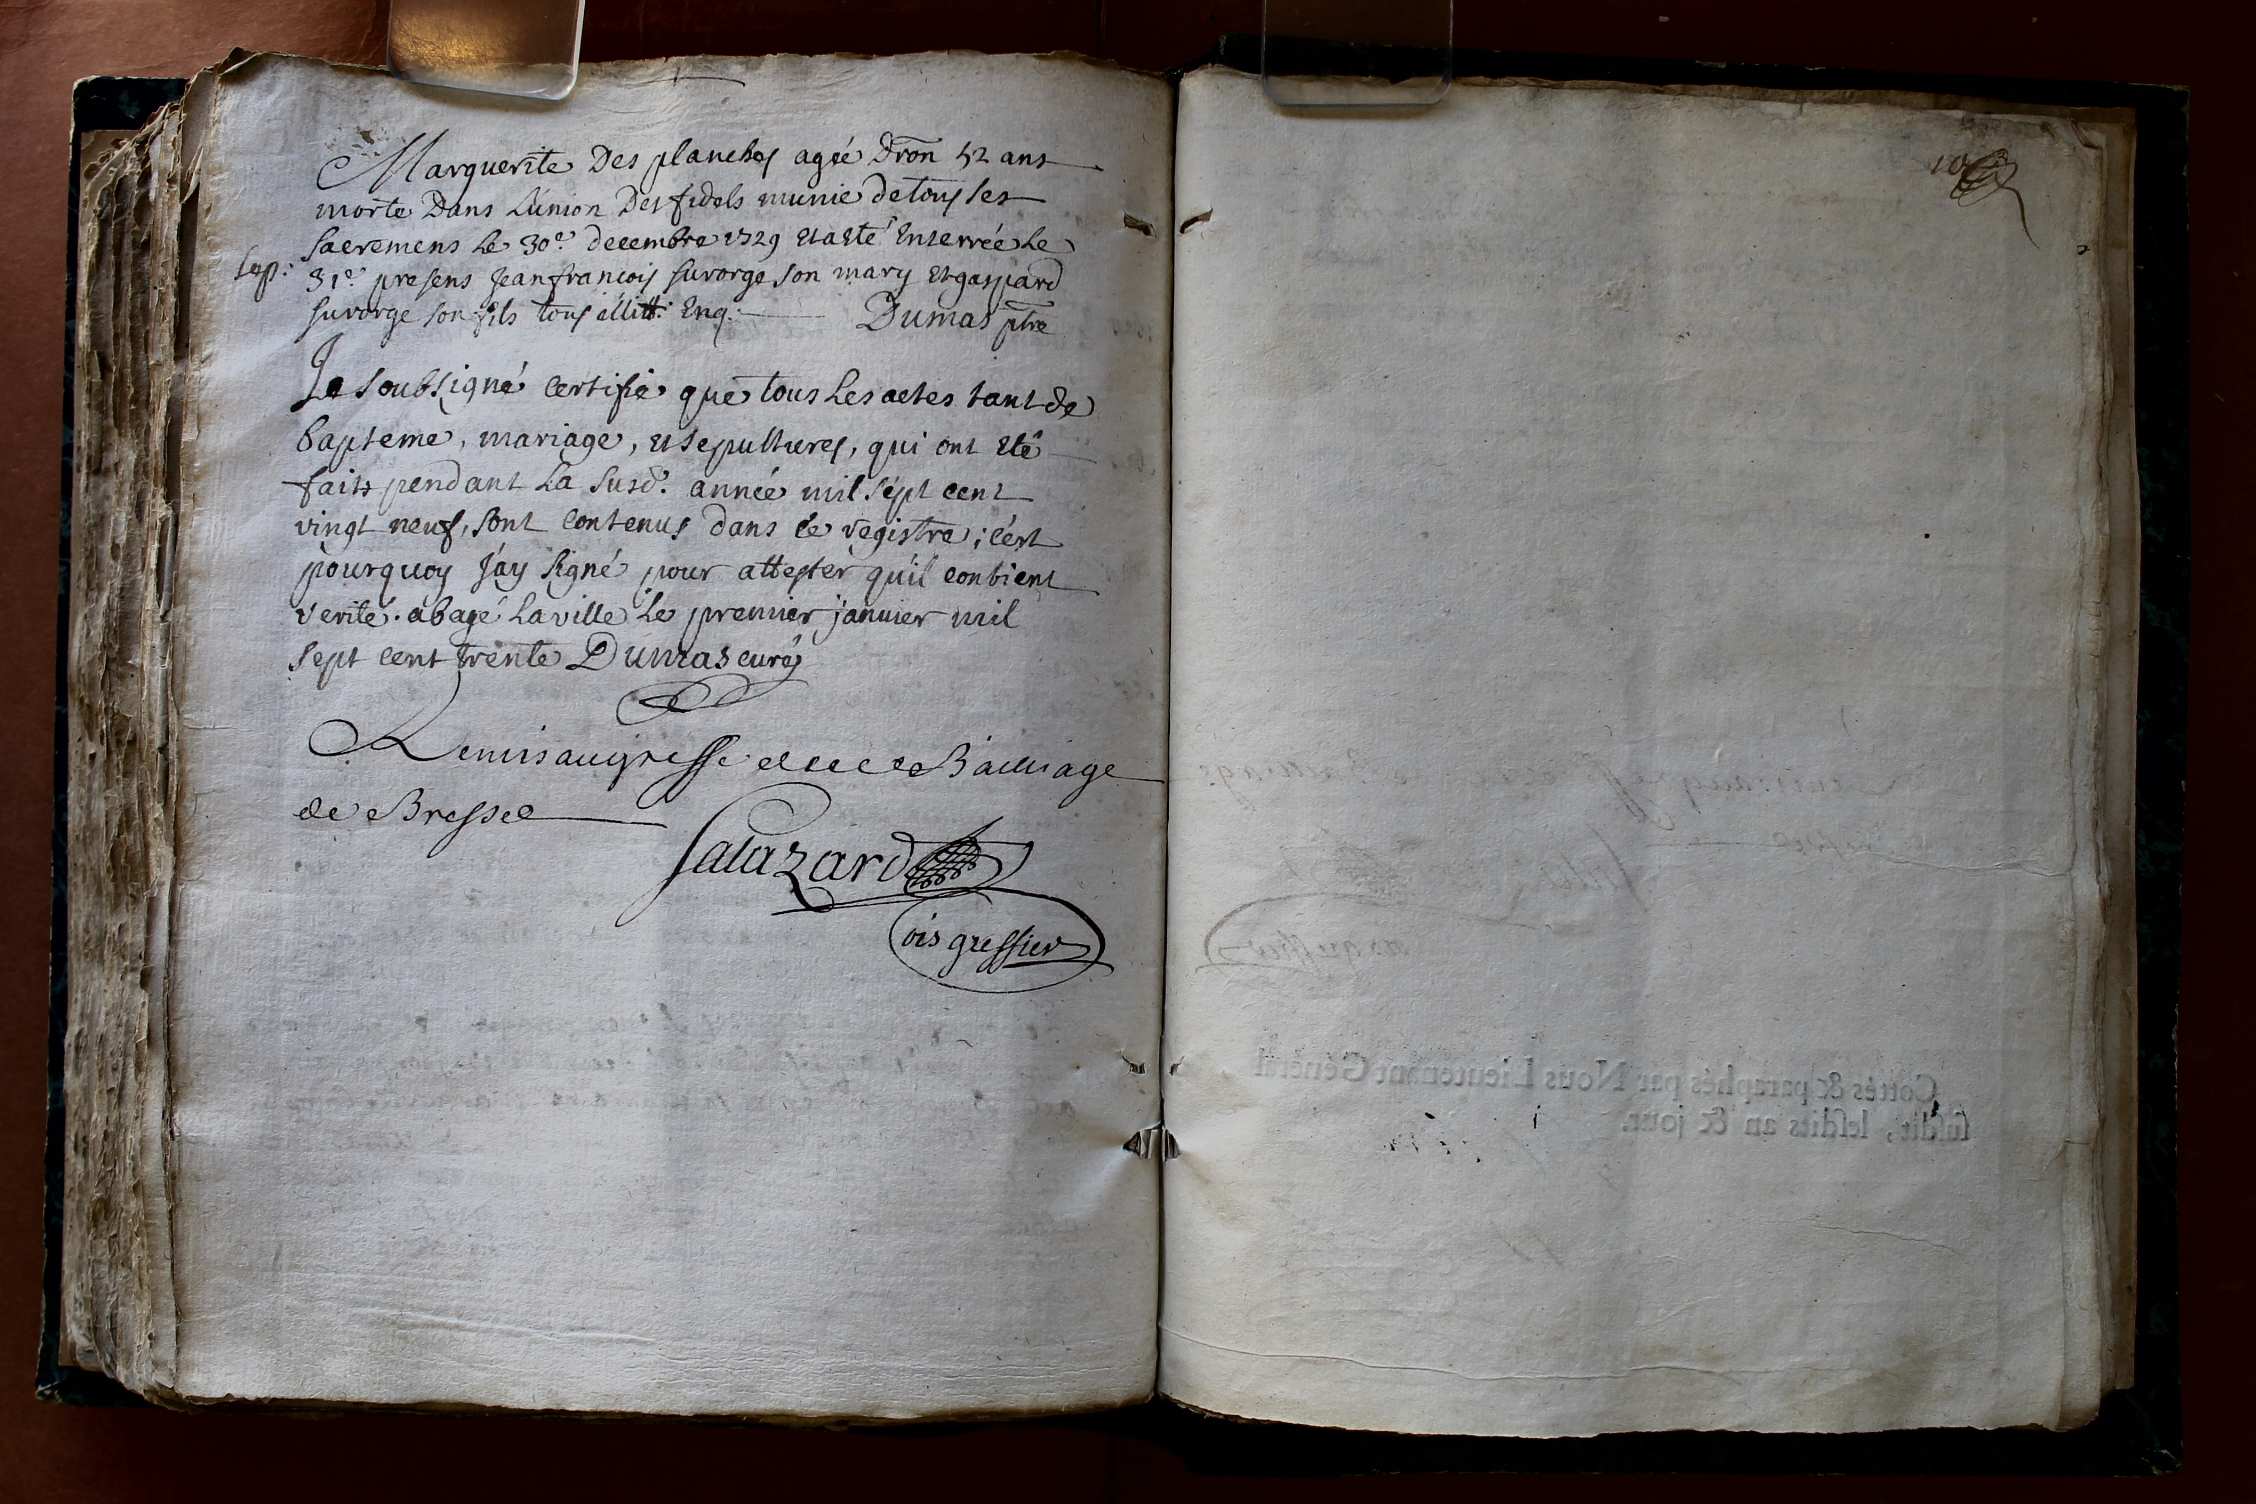 Marguerite Des planches agée d'ron 52 ans
morte Dans l'union Des fidels munie de tous ses
sacremens le 30e. decembre 1729 et a été enterrée le
Sep: 31e. presens Jean francois survorge son mary et gaspard
survorge son fils tous illitt: enq. Dumas ptre
Je soubsigné certifie que tous les actes tant de
bapteme, mariage, et sepultures, qui ont eté
faits pendant la susd. année mil sept cent
vingt neuf, sont contenus dans ce registre; c'est
pourquoy j'ay signé pour attester qu'il contient
verité. a bagé la ville le premier janvier mil
sept cent trente Dumas curé
Remis au greffe du Bailliage
de Bresse
Salazard
greffier
10
Cottés & paraphés par Nous Lieutenant Général
susdit, lesdits an & jour.